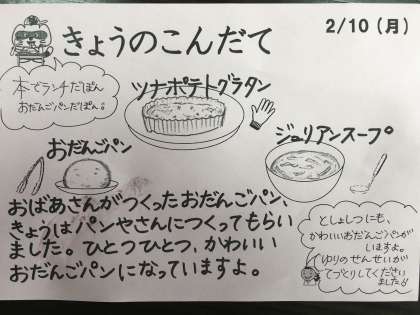 きょうのこんだて
2/10（月）
本でランチだぽん
おだんごパンだぽん♪
ツナポテトグラタン
おだんごパン
ジュリアンスープ
おばあさんがつくったおだんごパン、
きょうはパンやさんにつくってもらい
ました。ひとつひとつ、かわいい
おだんごパンになっていますよ。
としょしつにも、
かわいいおだんごパンが
いますよ。
ゆりのせんせいが
てづくりしてください
ました♪